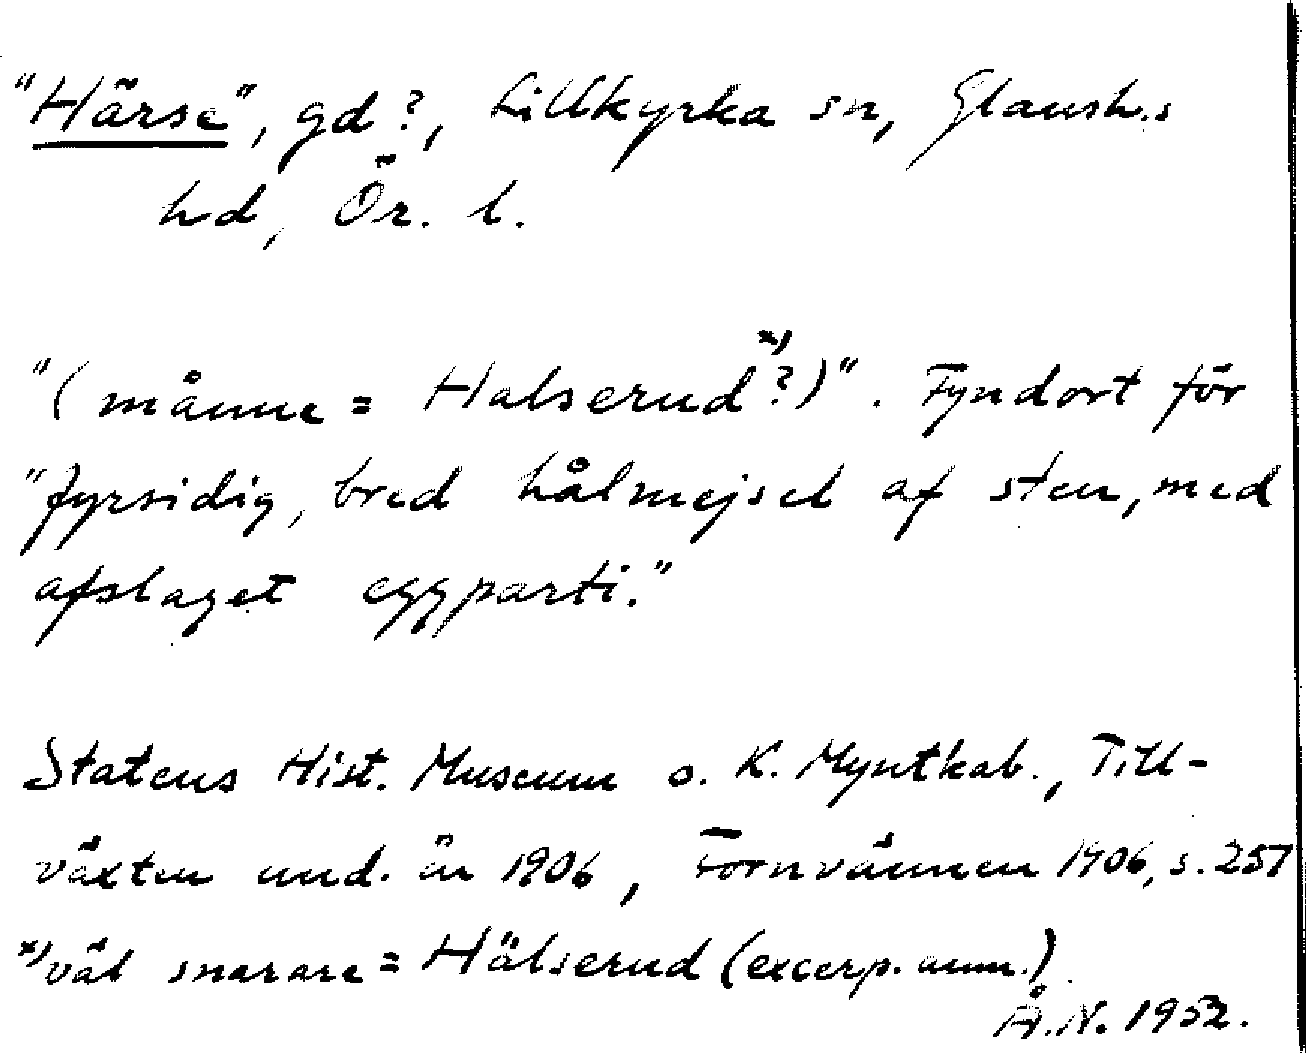 "Härse", gd?, Lillkyrka sn, Glansh.s
hd, Ör. l.
"(månne = Halserud x)?)". Fyndort för
"fyrsidig, bred hålmejsel af sten, med
afslaget eggparti."
Statens Hist. Museum o. K. Myntkab., Till-
växten und. år 1906, Fornvännen 1906, s. 257
x) väl snarare = Hälserud (excerp. anm.)
Å.N. 1952.